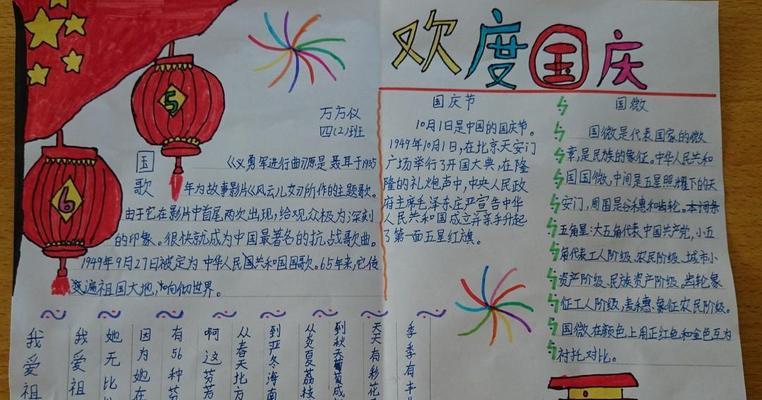 欢度国庆
5
6
万方仪
四(2)班
国歌
《义勇军进行曲》原是聂耳于1935
年为故事影片《风云儿女》所作的主题歌。
由于它在影片中首尾两次出现,给观众极为深刻
的印象。很快就成为中国最著名的抗战歌曲。
1949年9月27日被定为中华人民共和国国歌。65年来,它传
变遍祖国大地,响彻世界。
国庆节
10月1日是中国的国庆节。
1949年10月1日,在北京天安门
广场举行了开国大典,在隆
隆的礼炮声中,中央人民政
府主席毛泽东庄严宣告中华
人民共和国成立并亲手升起
了第一面五星红旗。
国徽
国徽是代表国家的徽
章,是民族的象征。中华人民共和
国国徽,中间是五星照耀下的天
安门,周围是谷穗和齿轮。
五角星:大五角代表中国共产党,小五
角代表工人阶级、农民阶级、城市小
资产阶级、民族资产阶级。齿轮象
征工人阶级,麦穗象征农民阶级。
国徽在颜色上用正红色和金色互为
衬托对比。
季季有丰
天天有彩花
到秋天葡萄成
从炎夏荔枝
到亚冬海南
从春天北方
啊这芬芳
有56种芬
因为她在
她无比
我爱祖
我爱祖